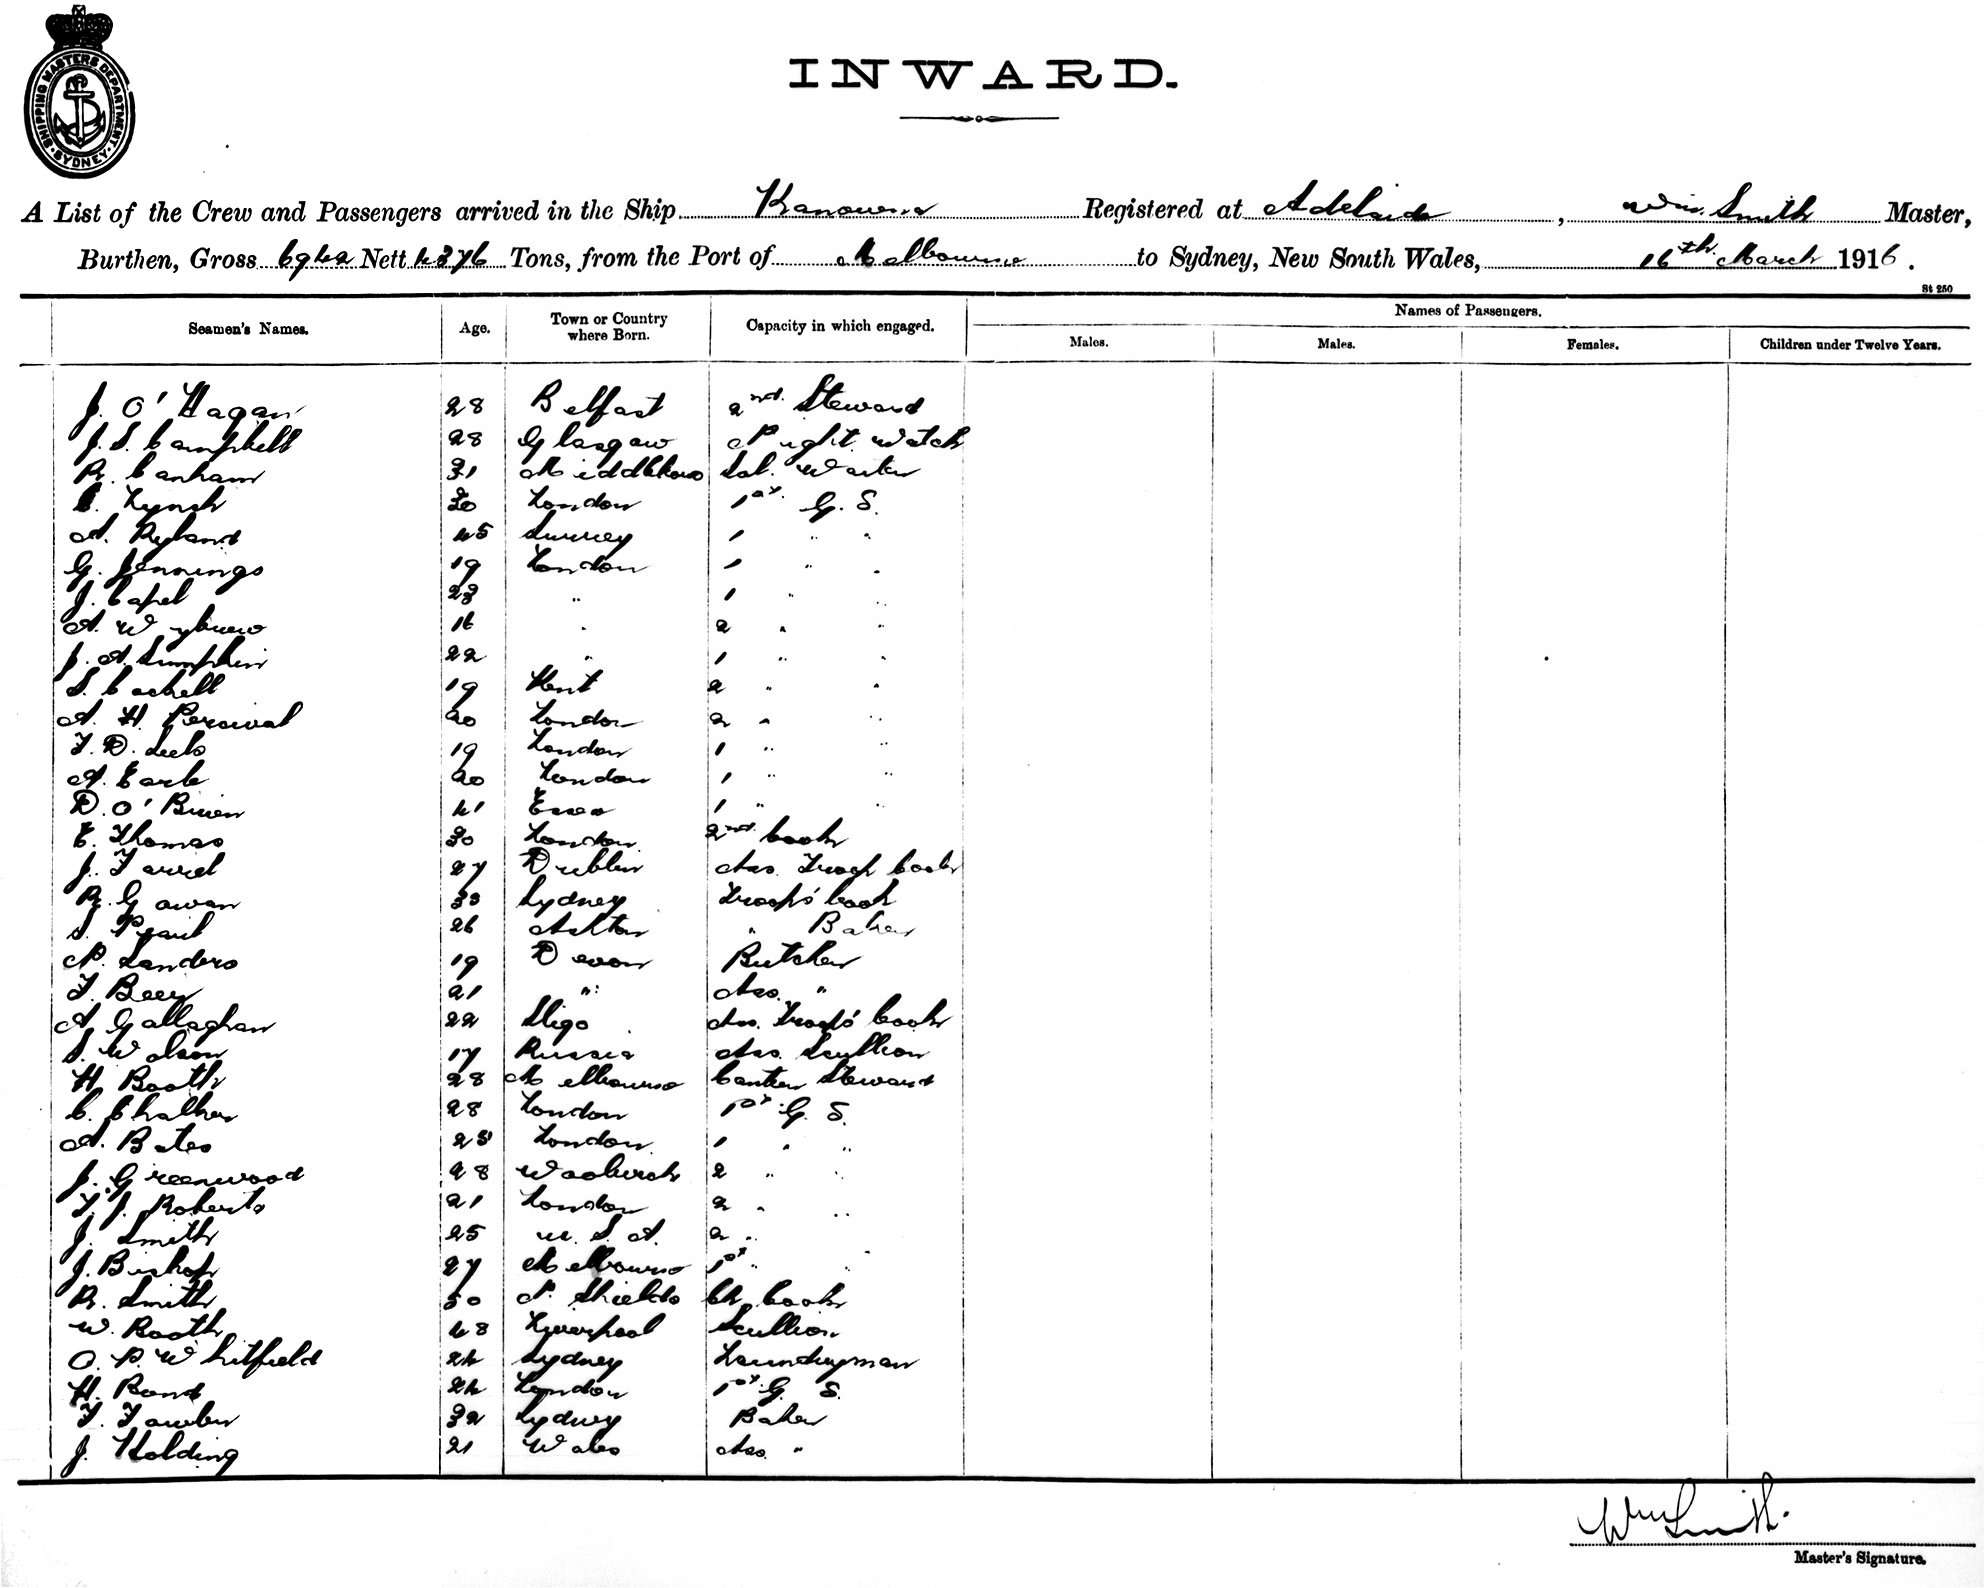 SHIPPING MASTERS DEPARTMENT. SYDNEY.
INWARD.
A List of the Crew and Passengers arrived in the Ship Kanowna Registered at Adelaide, Wm. Smith Master,
Burthen, Gross 6942 Nett 4376 Tons, from the Port of Melbourne to Sydney, New South Wales, 16th. March 1916.
St 250
Seamen's Names. Age. Town or Country where Born. Capacity in which engaged. Names of Passengers.
Males. Males. Females. Children under Twelve Years.
J. O'Hagan 28 Belfast 2nd. Steward
J. S. Campbell 28 Glasgow Night Watch
R. Canham 31 Sal. Waiter
C. Lynch 30 London 1st. G. S.
A. Ryland 45 Surrey 1 " "
G. Jennings 19 London 1 " "
J. Capel 23 " 1 " "
A. 16 " 2 " "
J. A. Lumpkin 22 " 1 " "
S. Cachell 19 Kent 2 " "
A. H. Percival 20 London 2 " "
F. D. 19 London 1 " "
A. Earle 20 London 1 " "
D. O'Brien 41 Essex 1 " "
E. Thomas 30 London 2nd. Cook
J. Farrel 27 Dublin Ass. Troop Cook
R. Gawan 33 Sydney Troops' Cook
S. 26 Ashton " Baker
N. Sanders 19 Devon Butcher
F. Beer 21 " Ass. "
A. Gallaghan 22 Sligo Ass. Troops' Cook
S. Wolson 17 Russia Ass. Scullion
H. Booth 28 Melbourne Canteen Steward
C. Chalker 28 London 1st. G. S.
A. Bates 25 London 1 " "
J. Greenwood 28 2 " "
T. J. Roberts 21 London 2 " "
J. Smith 25 U. S. A. 2 "
J. Bishop 27 Melbourne 1st " "
R. Smith 50 N. Shields Ch. Cook
W. Booth 48 Liverpool Scullion
O. P. Whitfield 24 Sydney Laundryman
H. Bond 24 London 1st G. S.
F. Fawler 32 Sydney Baker
J. Holding 21 Wales Ass. "
Wm Smith.
Master's Signature.